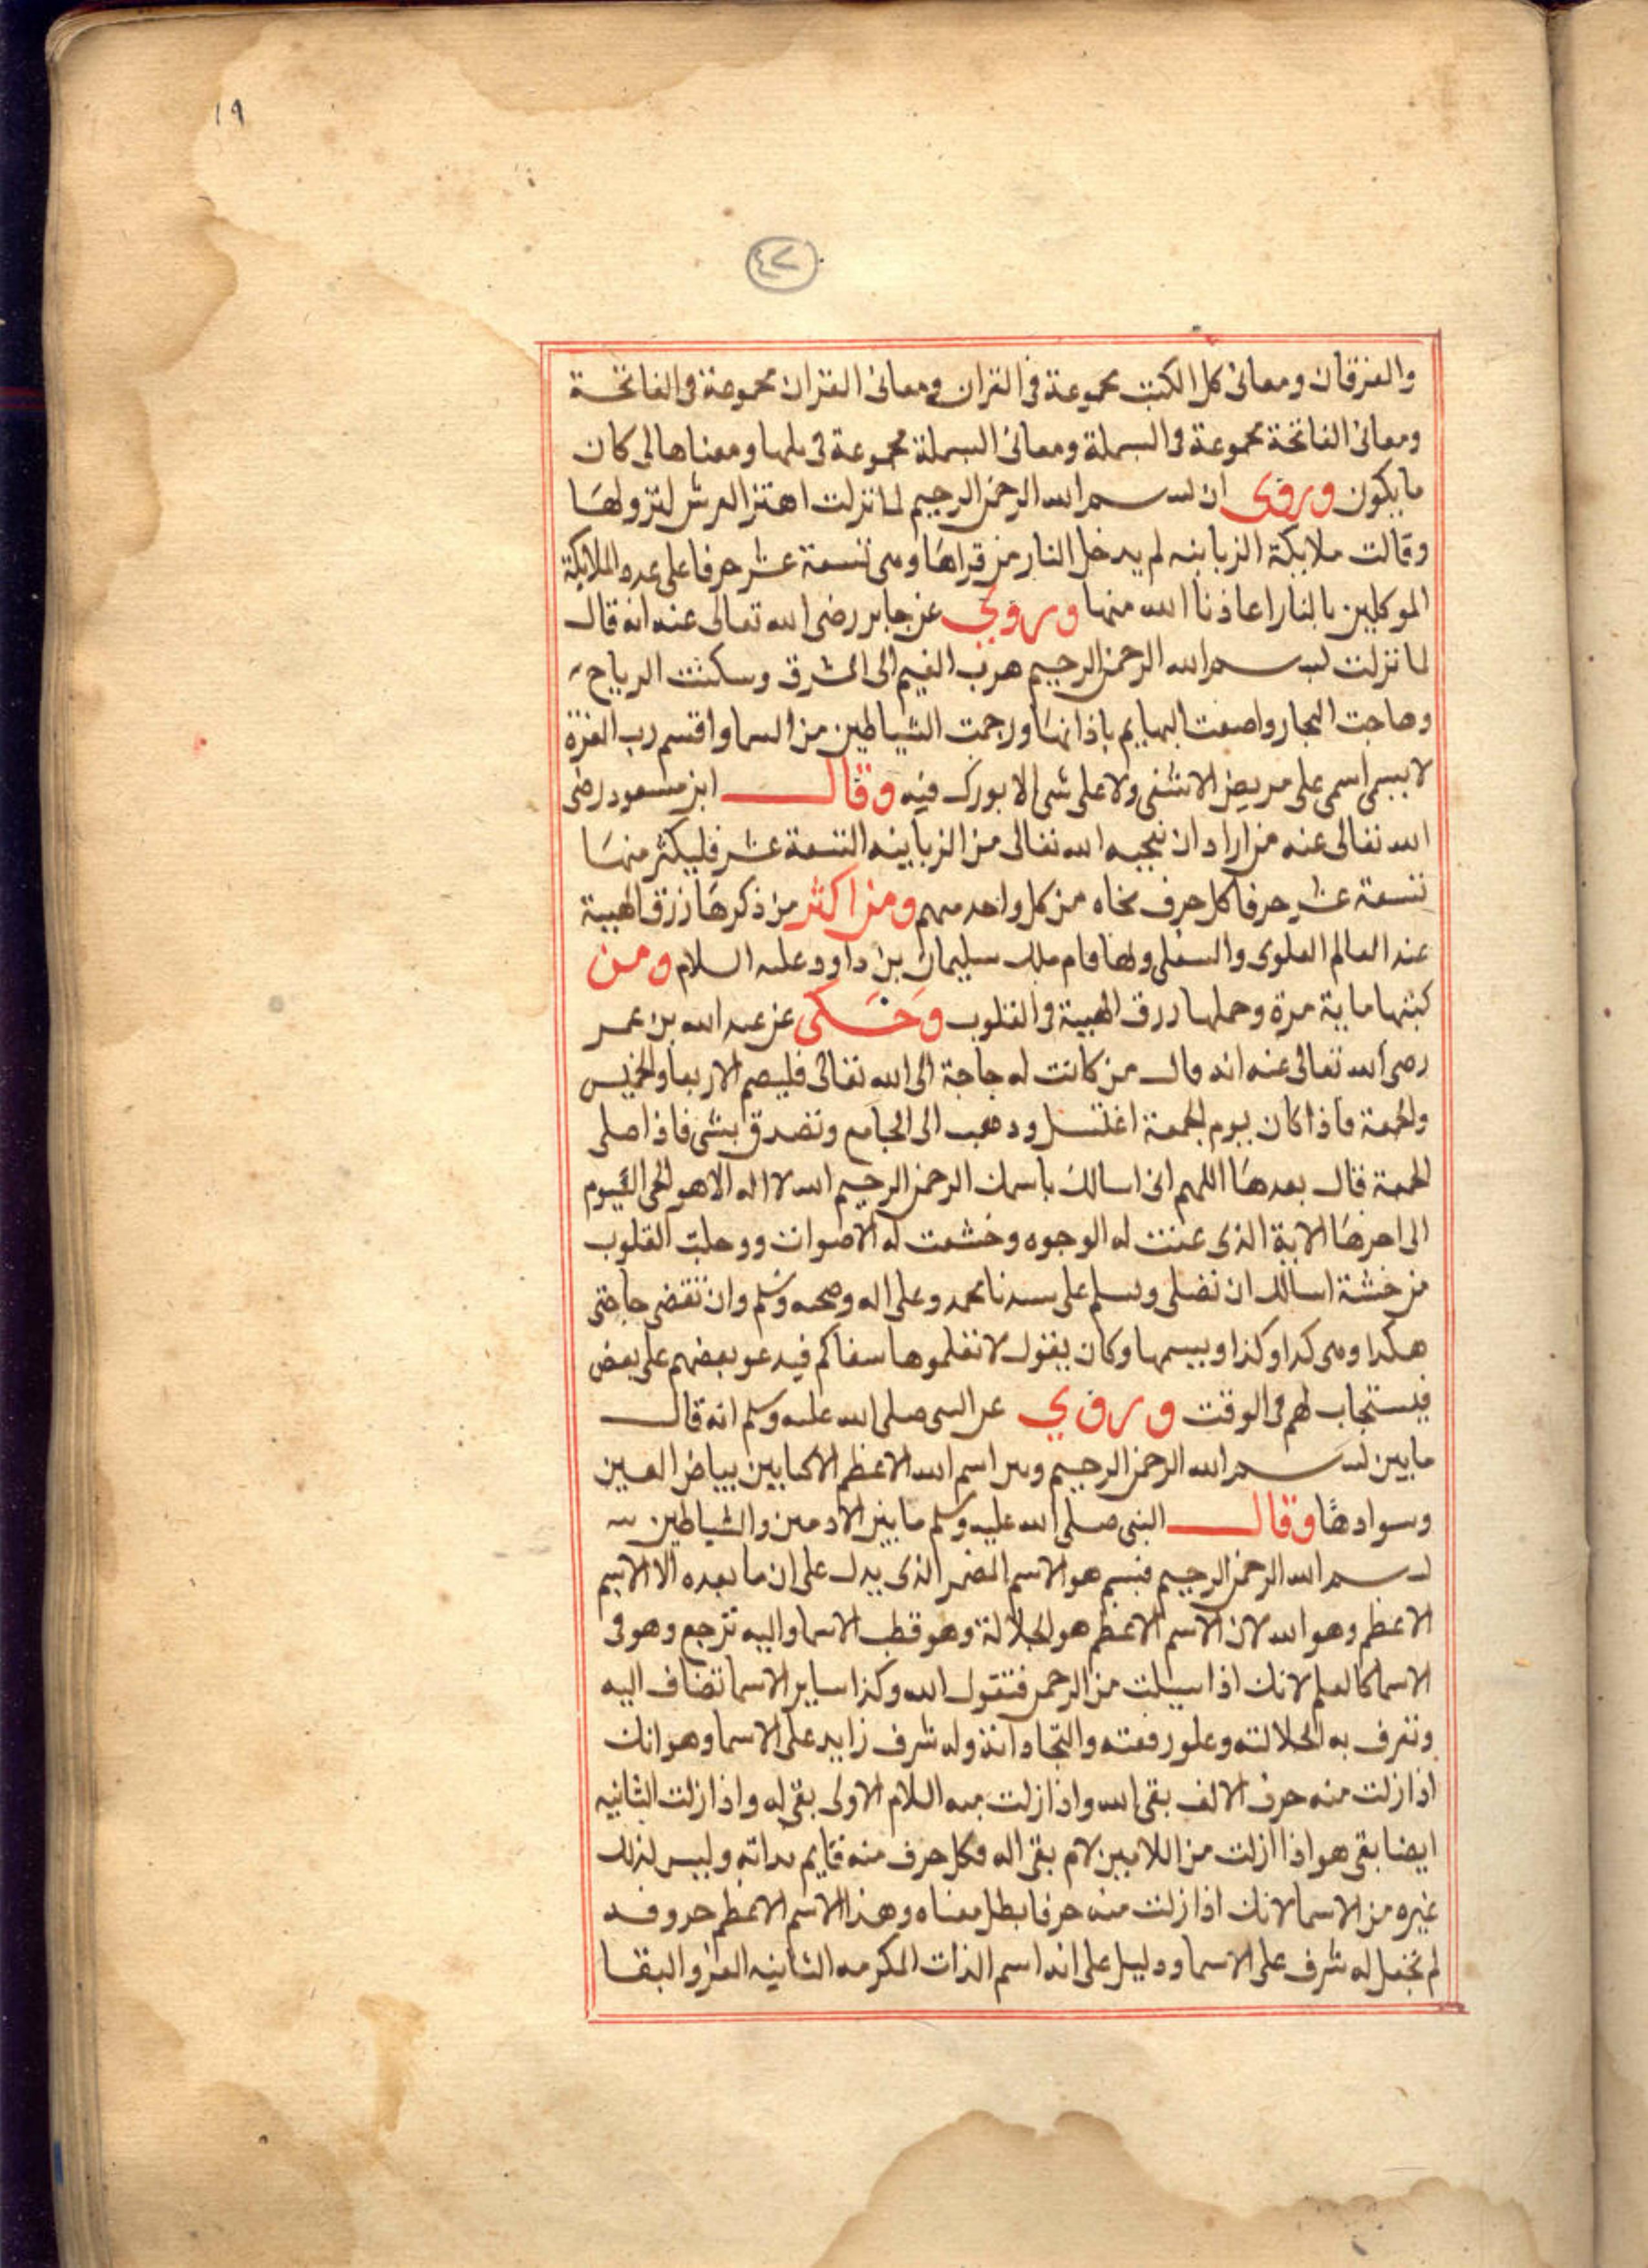 ١٩
٤٢
والفرقان ومعانى كل الكتب مجموعة فى القران ومعانى القران مجموعة فى الفاتحة
ومعانى الفاتحة مجموعة فى البسملة ومعانى البسملة مجموعة فى بايها ومعناها لى كان
ما يكون وروى ان بسم الله الرحمن الرحيم لما نزلت اهتز العرش لنزولها
وقالت ملايكة الزبانيه لم يدخل النار من قراها وهى تسعة عشر حرفا على عدد الملايكة
الموكلين بالنار اعاذنا الله منها وروي عن جابر رضى الله تعالى عنه انه قال
لما نزلت بسم الله الرحمن الرحيم هرب الغيم الى الشرق وسكنت الرياح
وهاجت البحار واصغت البهايم باذانها ورجمت الشياطين من السما واقسم رب العزة
لا يسمى اسمى على مريض الا شفى ولا على شى الا بورك فيه وقال ابن مسعود رضى
الله تعالى عنه من اراد ان ينجيه الله تعالى من الزبانيه التسعة عشر فليكثر منها
تسعة عشر حرفا كل حرف نجاه من كل واحد منهم ومن اكثر من ذكرها رزق الهيبة
عند العالم العلوى والسفلى وبها قام ملك سليمان بن داوود عليه السلام ومن
كتبها ماية مرة وحملها رزق الهيبة فى القلوب وحكى عن عبد الله بن عمر
رضى الله تعالى عنه انه قال من كانت له حاجة الى الله تعالى فليصم الاربعا والخميس
والجمعة فاذا كان يوم الجمعة اغتسل وذهب الى الجامع وتصدق بشى فاذا صلى
الجمعة قال بعدها اللهم انى اسالك باسمك الرحمن الرحيم الله لا اله الا هو الحى القيوم
الى اخرها الاية الذى عنت له الوجوه وخشعت له الاصوات ووجلت القلوب
من خشية اسالك ان تصلى وتسلم على سيدنا محمد وعلى اله وصحبه وسلم وان تقضى حاجتى
هكذا وهى كذا وكذا ويسمها وكان يقول لا تعلموها سفاكم فيدعو بعضهم على بعض
فيستجاب لهم فى الوقت وروي عن النبى صلى الله عليه وسلم انه قال
ما بين بسم الله الرحمن الرحيم وبين اسم الله الاعظم الا كما بين بياض العين
وسوادها وقال النبى صلى الله عليه وسلم ما بين الادمين والشياطين
بسم الله الرحمن الرحيم فبسم هو الاسم المضمر الذى يدل على ان ما بعده الا الاسم
الاعظم وهو الله لان الاسم الاعظم هو الجلالة وهو قطب الاسما واليه ترجع وهو فى
الاسما كالعلم لانك اذا سيلت من الرحمن فتقول الله وكذا ساير الاسما تضاف اليه
وتعرف به لجلالته وعلو رفعته وله شرف زايد على الاسما وهو انك
اذا زلت منه حرف الالف بقى لله واذا زلت منه اللام الاولى بقى له واذا زلت الثانيه
ايضا بقى هو اذا ازلت من اللامين لام بقى اله فكل حرف منه قايم بذاته وليس لذلك
غيره من الاسما لانك اذا زلت منه حرفا بطل معناه وهذا الاسم الاعظم حروفه
لم تختل له شرف على الاسما ودليل على انه اسم الذات المكرمه الثانيه العز والبقا